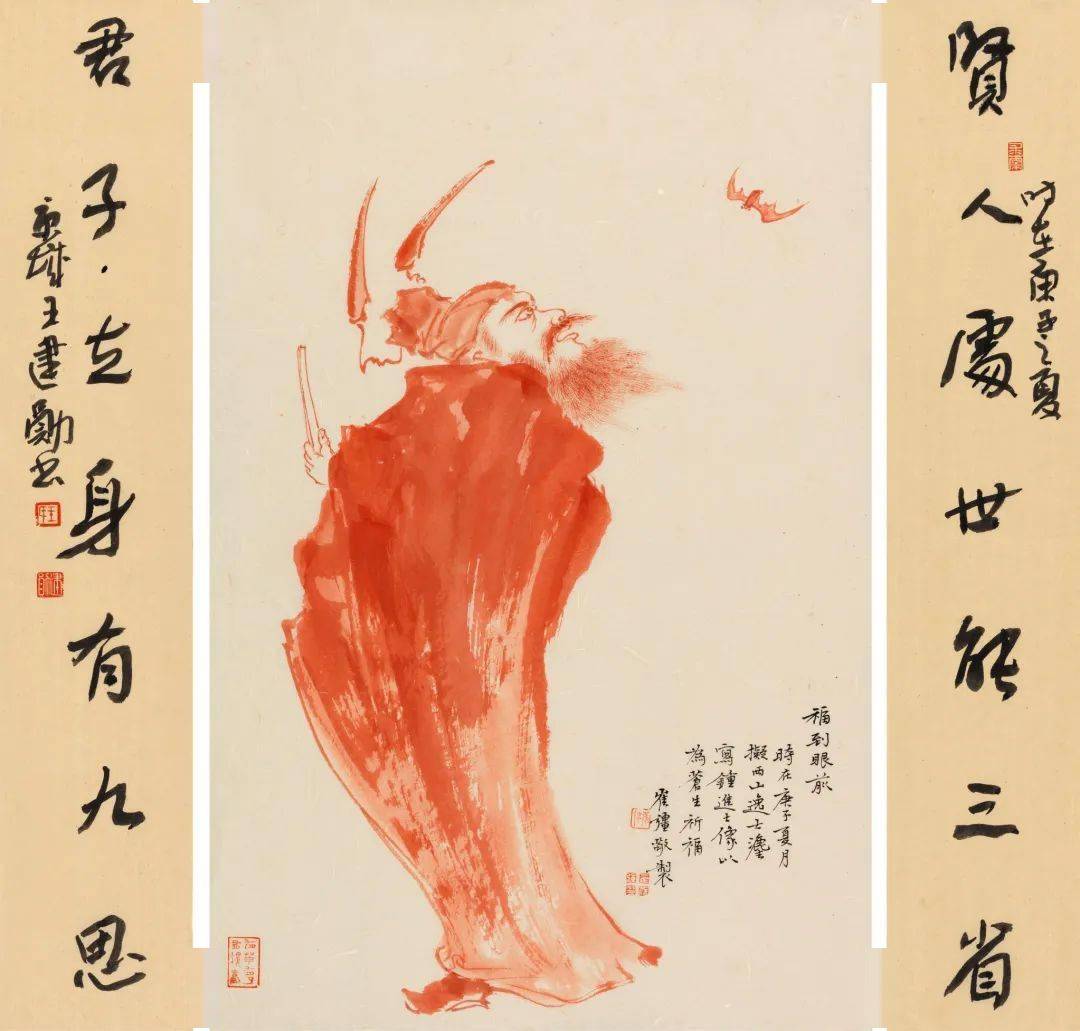 賢人處世能三省
時在庚子之夏
君子立身有九思
京城王建勛書
福到眼前
時在庚子夏月
擬西山逸士瀋
寫鍾進士像以
為蒼生祈福
崔彊敬製